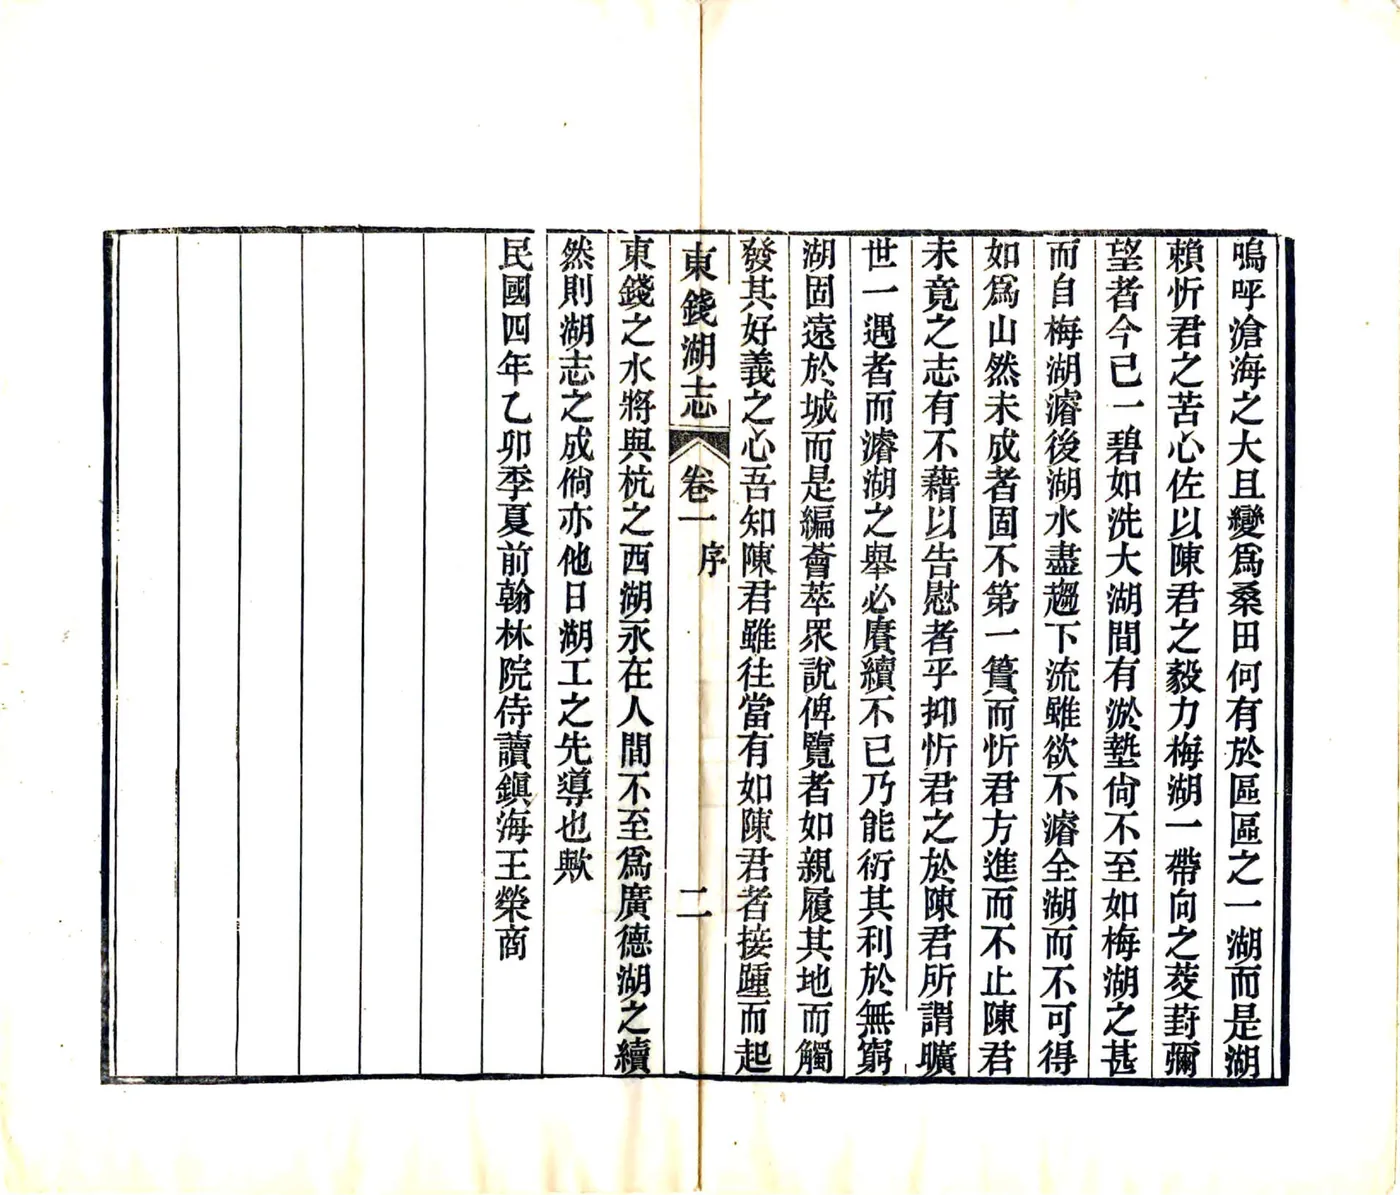 嗚呼滄海之大且變爲桑田何有於區區之一湖而是湖
賴忻君之苦心佐以陳君之毅力梅湖一帶向之茭葑彌
望者今已一碧如洗大湖間有淤墊尙不至如梅湖之甚
而自梅湖濬後湖水盡趨下流雖欲不濬全湖而不可得
如爲山然未成者固不第一簣而忻君方進而不止陳君
未竟之志有不藉以告慰者乎抑忻君之於陳君所謂曠
世一遇者而濬湖之舉必賡續不已乃能衍其利於無窮
湖固遠於城而是編薈萃眾說俾覽者如親履其地而觸
發其好義之心吾知陳君雖往當有如陳君者接踵而起
東錢湖志 卷一 序 二
東錢之水將與杭之西湖永在人間不至爲廣德湖之續
然則湖志之成倘亦他日湖工之先導也歟
民國四年乙卯季夏前翰林院侍讀鎭海王榮商